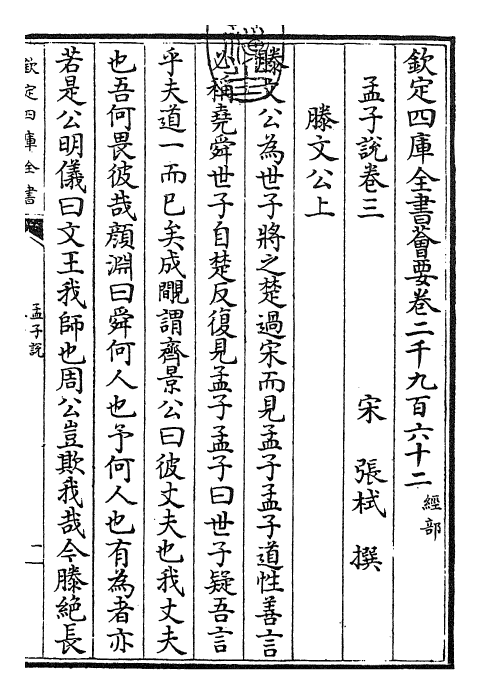 欽定四庫全書薈要卷二千九百六十二 經部
孟子說卷三 宋 張栻 撰
滕文公上
滕文公為世子將之楚過宋而見孟子孟子道性善言
必稱堯舜世子自楚反復見孟子孟子曰世子疑吾言
乎夫道一而已矣成覵謂齊景公曰彼丈夫也我丈夫
也吾何畏彼哉顏淵曰舜何人也予何人也有為者亦
若是公明儀曰文王我師也周公豈欺我哉今滕絶長
欽定四庫全書
孟子說